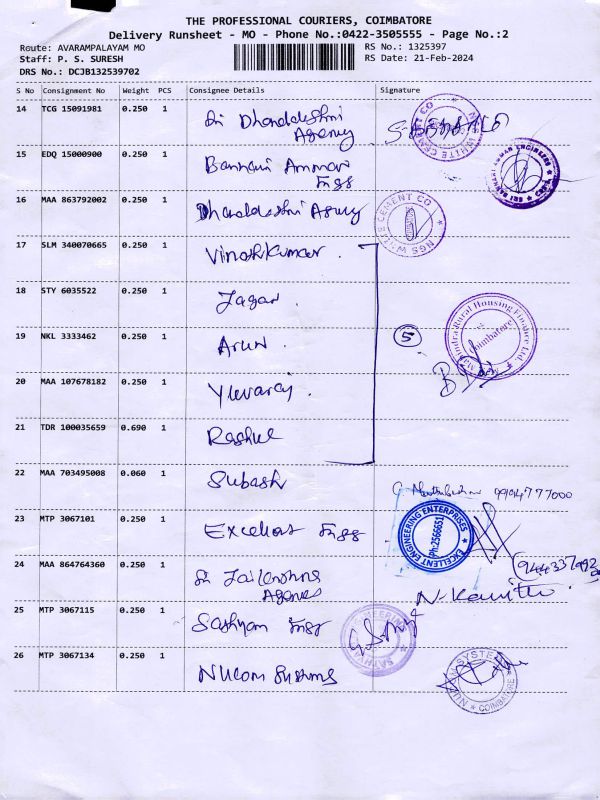 THE PROFESSIONAL COURIERS, COIMBATORE
Delivery Runsheet - MO - Phone No.:0422-3505555 - Page No.:2
Route: AVARAMPALAYAM MO
RS No.: 1325397
Staff: P. S. SURESH
RS Date: 21-Feb-2024
DRS No.: DCJB132539702
S No Consignment No Weight PCS Consignee Details Signature
14 TCG 15091981 0.250 1 Sri Dhanalakshmi
Agency
NGS WHITE CEMENT CO
15 EDQ 15000900 0.250 1 Bannari Amman
Engg
SRI BANNARI AMMAN ENGINEERS
16 MAA 863792002 0.250 1 Dhanalakshmi Agency
NGS WHITE CEMENT CO
17 SLM 340070665 0.250 1 Vinothkumar.
18 STY 6035522 0.250 1 Jagan.
Rural Housing Finance Ltd.
Coimbatore
19 NKL 3333462 0.250 1 Arun.
5
20 MAA 107678182 0.250 1 Yuvaraj.
21 TDR 100035659 0.690 1 Rashul
22 MAA 703495008 0.060 1 Subash
23 MTP 3067101 0.250 1 Excellent Engg
EXCELLENT ENGINEERING ENTERPRISES
Ph:2566651
24 MAA 864764360 0.250 1 Sri
Agencies
N. Kavitha
25 MTP 3067115 0.250 1 Sathyam Engg
26 MTP 3067134 0.250 1 Nucon Systems
COIMBATORE